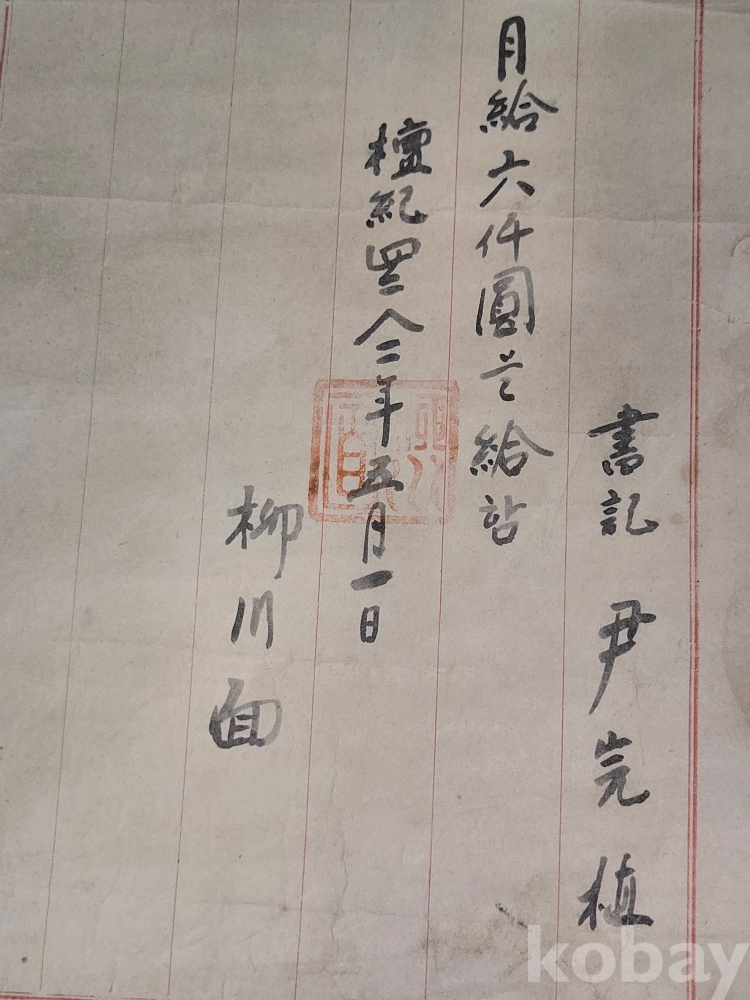 書記 尹完植
月給六仟圓을給함
檀紀四二八二年五月一日
柳川面
kobay